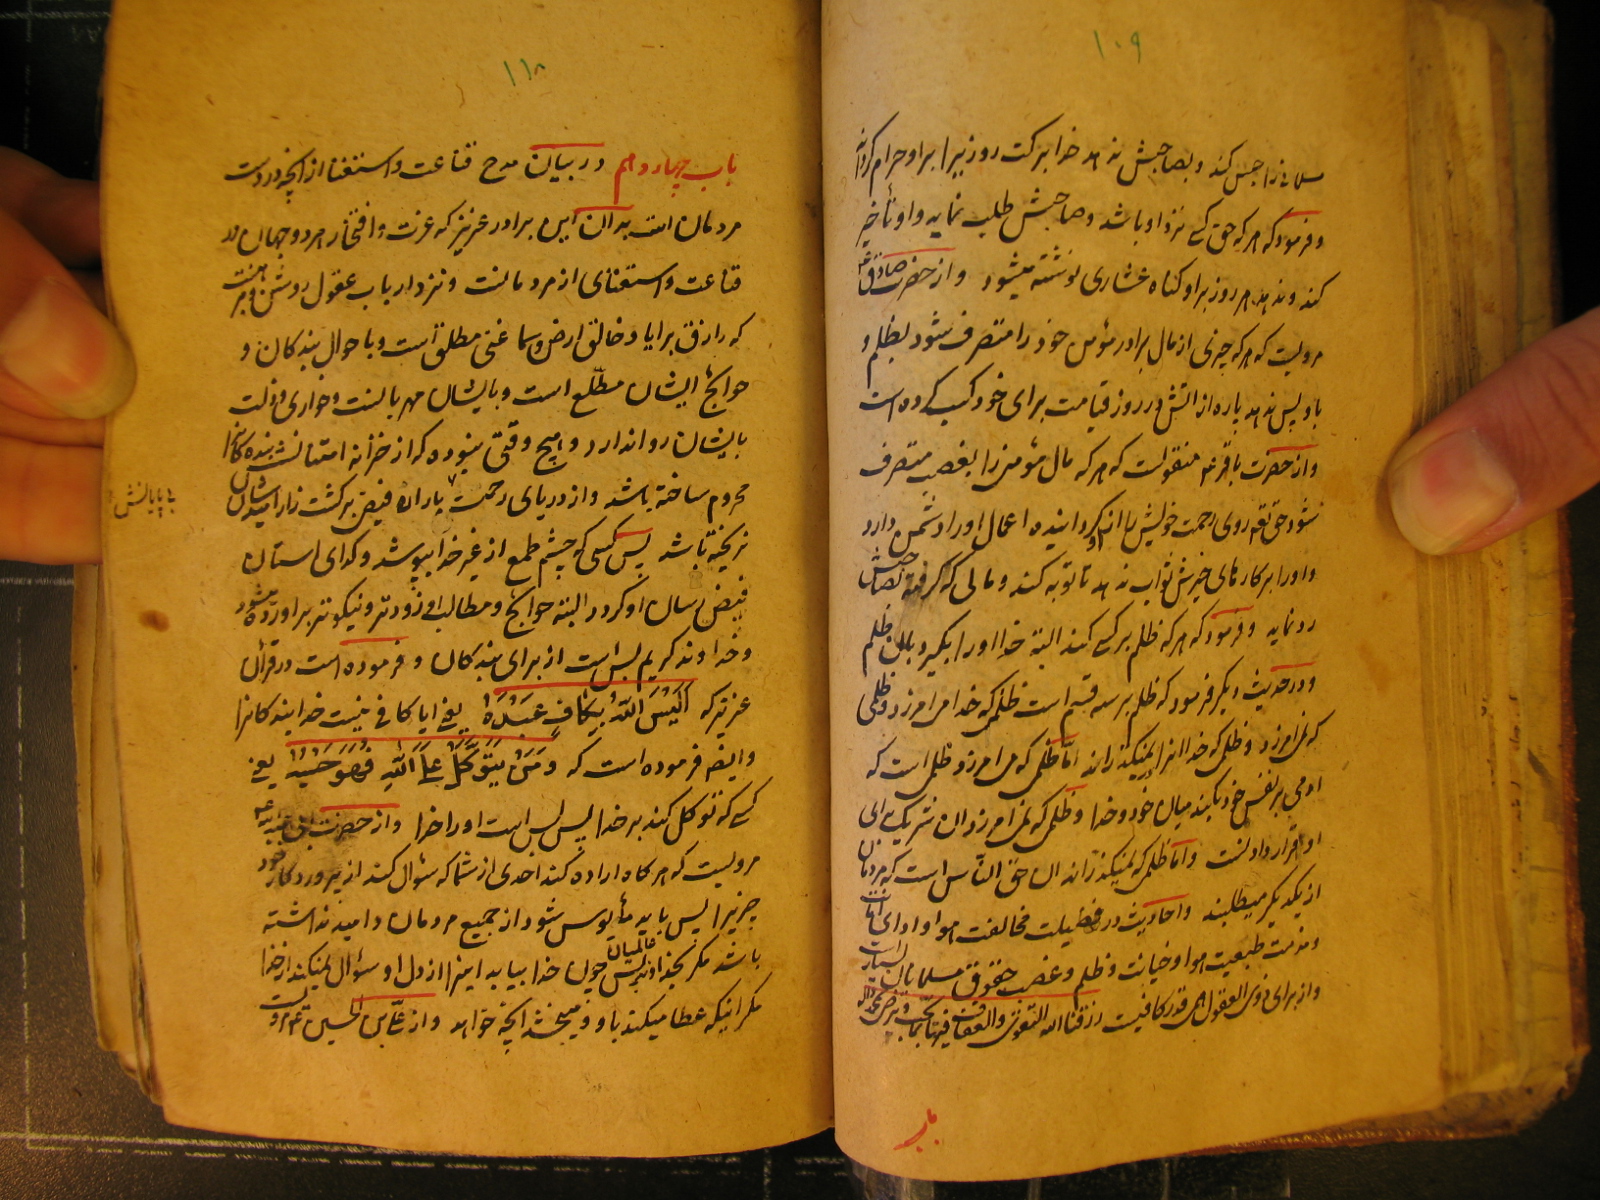 ۱۰۹
مسلمانی را حبس کند و بصاحبش ندهد خدا برکت روزیرا بر او حرام کرداند
و فرمود که هر که حق کسی نزد او باشد و صاحبش طلب نماید و او تأخیر
کند و ندهد هر روز بر او کناه عشاری نوشته میشود و از حضرت صادق ع
مرویست که هر که چیزی از مال برادر مؤمن خود را متصرف شود بظلم و
باو پس ندهد پاره از اتش در روز قیامت برای خود کسب کرده است
و از حضرت باقر ع منقولست که هر که مال مؤمن را بغصب متصرف
شود حق تعه روی رحمت خویش را از او کرداینده اعمال او را دشمن دارد
و او را بر کارهای خیرش ثواب ندهد تا توبه کند و مالی که کرفته بصاحبش
رد نماید و فرمود که هر که ظلم بر کسی کند البته خدا او را بکیرد بان ظلم
و در حدیث دیکر فرمود که ظلم بر سه قسم است ظلمی که خدا می امرزد و ظلمی
که نمی امرزد و ظلمی که خدا انرا نمیکذراند اما ظلمی که می امرزد ظلمی است که
ادمی بر نفس خود بکند میان خود و خدا و ظلمی که نمی امرزد ان شریک برای
او قرار دادنست و اما ظلمی که نمیکذراند ان حق النّاس است که مردمان
از یکدیکر میطلبند و احادیث در فضیلت مخالفت هوا و ادای امانت
و مذمت طبیعت هوا و خیانت و ظلم و غصب حقوق مسلمانان بسیار است
و از برای ذوی العقول این قدر کافیست رزقنا الله التقوی و العفاف
باب
۱۱۰
باب چهاردهم در بیان مدح قناعت و استغنا از انچه در دست
مردمان است بدان ایی برادر عزیز که عزت و افتخار هر دو جهان در
قناعت و استغنای از مردمانست و نزد ارباب عقول روشن و مبرهنست
که رازق برایا و خالق ارض و سما غنی مطلق است و باحوال بندکان و
حوایج ایشان مطّلع است و بایشان مهربانست و خواری و ذلت
بایشان روا ندارد و هیچ وقتی نبوده که از خزانه امتنانش بنده کانرا
محروم ساخته باشد و از دریای رحمت باران فیض بر کشت زار امیدشان
بی پایانش
نریخته باشد پس کسی که چشم طمع از غیر خدا بپوشد و کدای استان
فیض رسان او کردد البته حوایج و مطالب او زودتر و نیکوتر براورده میشود
و خداوند کریم بس است از برای بندکان و فرموده است در قران
عزیز که اَلَیْسَ اللهُ بِکافٍ عَبْدَهُ یعنی ایا کافی نیست خدا بندکانرا
و ایضه فرموده است که وَمَنْ یَتَوَکَّلْ عَلَی اللهِ فَهُوَ حَسْبُهُ یعنی
کسی که توکل کند بر خدا پس بس است او را خدا و از حضرت
مرویست که هر کاه اراده کند احدی از شما که سؤال کند از پروردکار خود
چیزیرا پس باید مأیوس شود از جمیع مردمان و امید نداشته
باشد مکر بخداوند عالمیان پس چون خدا بیابد اینرا از دل او سؤال نمیکند از خدا
مکر انیکه عطا میکند باو و میبخشد انچه خواهد و از علی بن الحسین ع مرویست